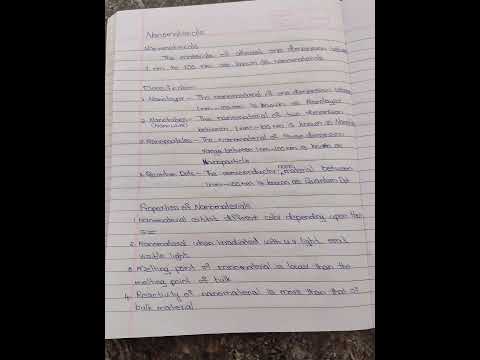 Nanomaterials
Nanomaterials
The materials of atleast one dimension
1 nm to 100 nm are known as nanomaterials
1. Nanolayer - The nanomaterial of one dimension
1nm-100nm is known as Nanolayer
2. Nanotubes - The nanomaterial of two dimension
(Nanowire) between 1nm-100nm is known as
3. - The nanomaterial of three dimension
range between 1nm-100nm is known as
Nanoparticle
4. Quantum Dots - The semiconductor nano material between
1nm-100nm is known as Quantum Dot
Properties of Nanomaterials
1. Nanomaterial exhibit different color depending upon their
size
2. Nanomaterial when irradiated with u.v light emit
visible light
3. Melting point of nanomaterial is lower than the
melting point of bulk
4. Reactivity of nanomaterial is more than that of
bulk material